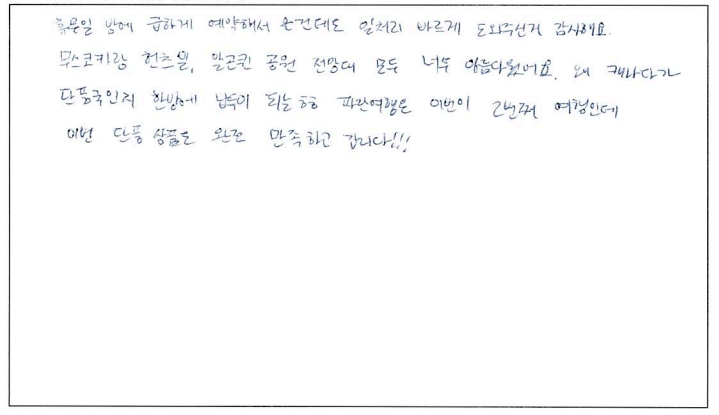 밤에 급하게 예약해서 온건데도 일처리 바르게 도와주신거 감사해요.
무스코카랑 헌츠빌, 알곤퀸 공원 전망대 모두 너무 아름다웠어요. 왜 캐나다가
단풍국인지 한방에 납득이 되는 ㅎㅎ 파란여행은 이번이 2번째 여행인데
이번 단풍 상품도 완전 만족하고 갑니다!!!